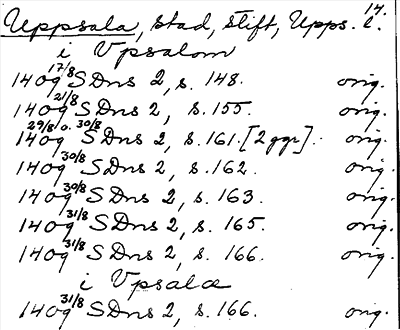 14.
Uppsala, stad, stift, Upps. l.
i Vpsalom
1409 17/8 SDns 2, s. 148. orig.
1409 21/8 SDns 2, s. 155. orig.
1409 29/8 o. 30/8 SDns 2, s. 161. [2 ggr]. orig.
1409 30/8 SDns 2, s. 162. orig.
1409 30/8 SDns 2, s. 163. orig.
1409 31/8 SDns 2, s. 165. orig.
1409 31/8 SDns 2, s. 166. orig.
i Vpsala
1409 31/8 SDns 2, s. 166. orig.